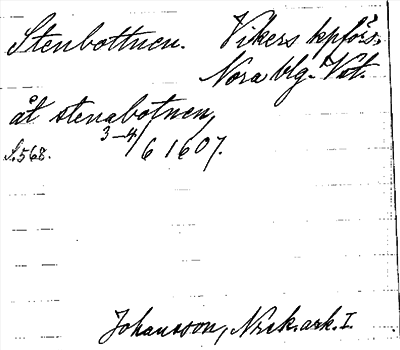 Stenbottnen. Vikers kpförs.,
Nora blg. Vstm.
åt stenabotnen,
S. 568. 3-4/6 1607.
Johansson, Norark. ark. I.